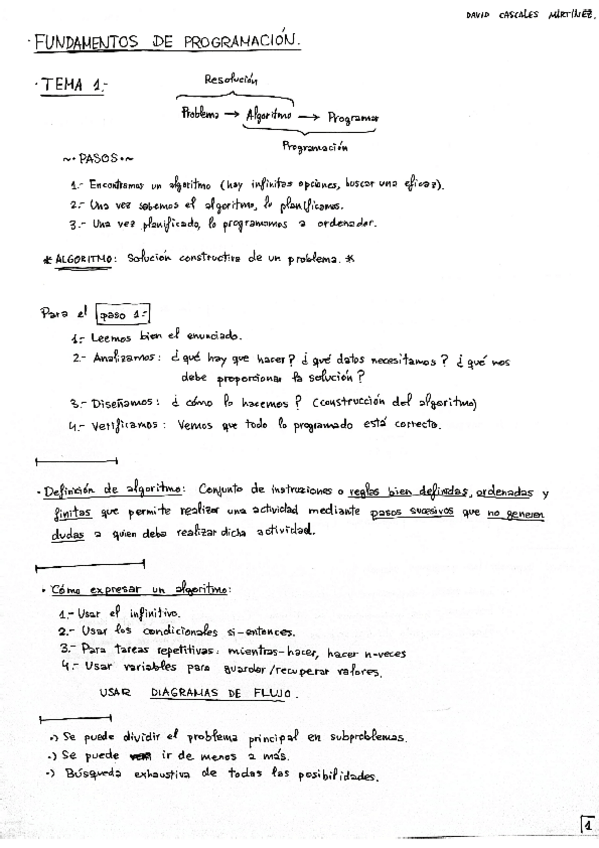 DAVID CASCALES MARTÍNEZ.
· FUNDAMENTOS DE PROGRAMACIÓN.
· TEMA 1.-
Resolución
Problema → Algoritmo → Programar
Programación
~·PASOS·~
1.- Encontramos un algoritmo (hay infinitas opciones, buscar una eficaz).
2.- Una vez sabemos el algoritmo, lo planificamos.
3.- Una vez planificado, lo programamos a ordenador.
* ALGORITMO: Solución constructiva de un problema. *
Para el paso 1.-
1.- Leemos bien el enunciado.
2.- Analizamos: ¿qué hay que hacer? ¿qué datos necesitamos? ¿qué nos
debe proporcionar la solución?
3.- Diseñamos: ¿cómo lo hacemos? (construcción del algoritmo)
4.- Verificamos: Vemos que todo lo programado está correcto.
· Definición de algoritmo: Conjunto de instruziones o reglas bien definidas, ordenadas y
finitas que permite realizar una actividad mediante pasos sucesivos que no generen
dudas a quien deba realizar dicha actividad.
· Cómo expresar un algoritmo:
1.- Usar el infinitivo.
2.- Usar los condicionales si-entonces.
3.- Para tareas repetitivas: mientras-hacer, hacer n-veces
4.- Usar variables para guardar/recuperar valores.
USAR DIAGRAMAS DE FLUJO.
·) Se puede dividir el problema principal en subproblemas.
·) Se puede ir de menos a más.
·) Búsqueda exhaustiva de todas las posibilidades.
1